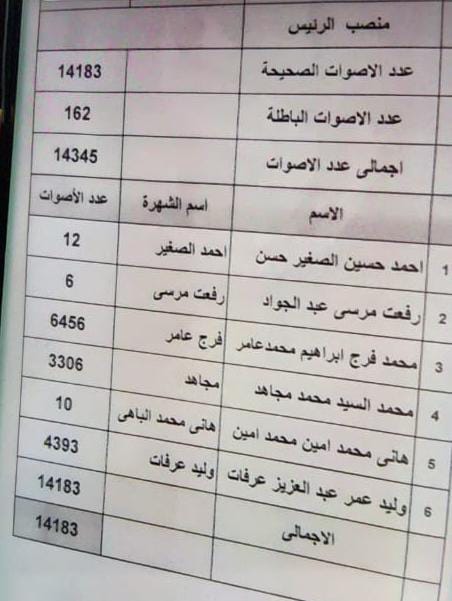 منصب الرئيس
عدد الاصوات الصحيحة 14183
عدد الاصوات الباطلة 162
اجمالى عدد الاصوات 14345
الاسم اسم الشهرة عدد الأصوات
1 احمد حسين الصغير حسن احمد الصغير 12
2 رفعت مرسى عبد الجواد رفعت مرسى 6
3 محمد فرج ابراهيم محمدعامر فرج عامر 6456
4 محمد السيد محمد مجاهد مجاهد 3306
5 هانى محمد امين محمد امين هانى محمد الباهى 10
6 وليد عمر عبد العزيز عرفات وليد عرفات 4393
الاجمالى 14183
14183